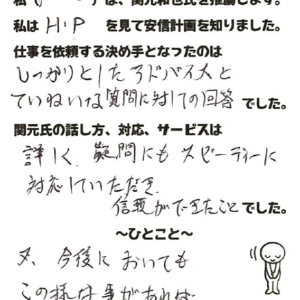 私(      )は、関元和也氏を推薦します。
私は HP を見て安信計画を知りました。
仕事を依頼する決め手となったのは
しっかりとしたアドバイスと
ていねいな質問に対しての回答 でした。
関元氏の話し方、対応、サービスは
詳しく、疑問にもスピーディーに
対応していただき
信頼ができたこと でした。
〜ひとこと〜
又、今後においても
この様な事があれば